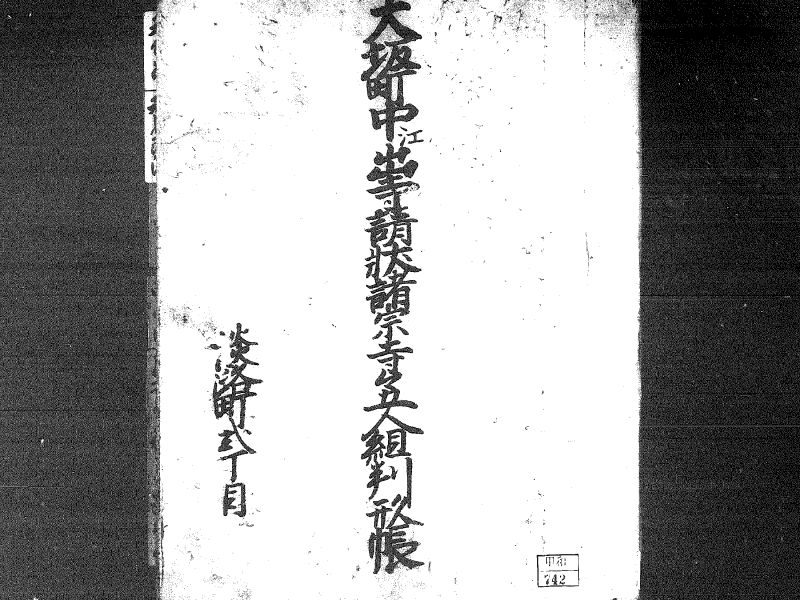 大坂町中江出寺請状諸宗寺々五人組判形帳
淡路町弐丁目
甲和
742